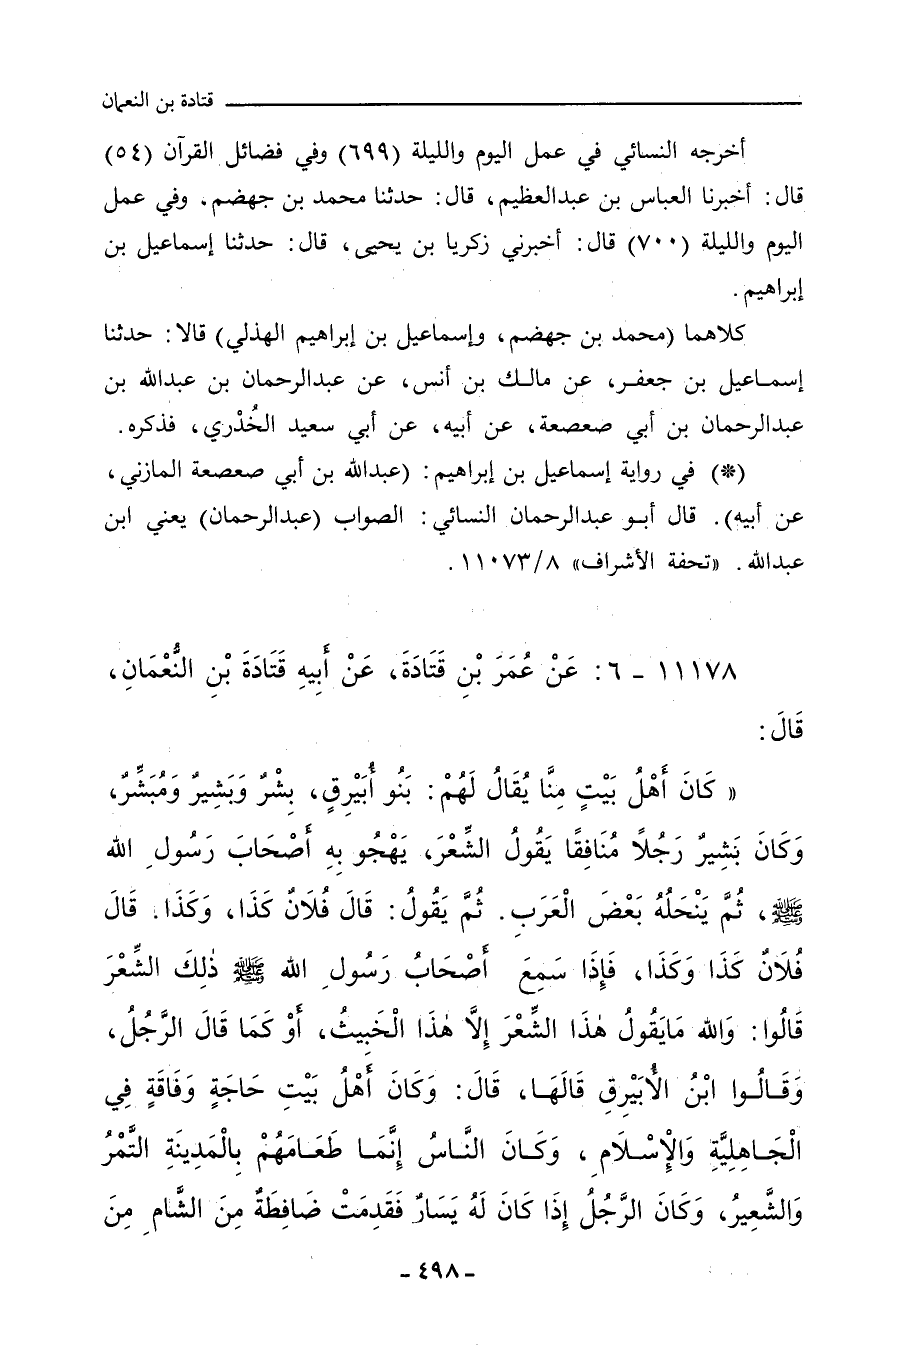 قتادة بن النعمان
أخرجه النسائي في عمل اليوم والليلة (٦٩٩) وفي فضائل القرآن (٥٤)
قال: أخبرنا العباس بن عبدالعظيم، قال: حدثنا محمد بن جهضم. وفي عمل
اليوم والليلة (٧٠٠) قال: أخبرني زكريا بن يحيى، قال: حدثنا إسماعيل بن
إبراهيم.
كلاهما (محمد بن جهضم، وإسماعيل بن إبراهيم الهذلي) قالا: حدثنا
إسماعيل بن جعفر، عن مالك بن أنس، عن عبدالرحمان بن عبدالله بن
عبدالرحمان بن أبي صعصعة، عن أبيه، عن أبي سعيد الخُدْري، فذكره.
(*) في رواية إسماعيل بن إبراهيم: (عبدالله بن أبي صعصعة المازني،
عن أبيه). قال أبو عبدالرحمان النسائي: الصواب (عبدالرحمان) يعني ابن
عبدالله. «تحفة الأشراف» ١١٠٧٣/٨.
١١١٧٨ - ٦: عَنْ عُمَرَ بْنِ قَتَادَةَ، عَنْ أَبِيهِ قَتَادَةَ بْنِ النُّعْمَانِ،
قَالَ:
« كَانَ أَهْلُ بَيْتٍ مِنَّا يُقَالُ لَهُمْ: بَنُو أُبَيْرِقٍ، بِشْرٌ وَبَشِيرٌ وَمُبَشِّرٌ،
وَكَانَ بَشِيرٌ رَجُلاً مُنَافِقًا يَقُولُ الشِّعْرَ، يَهْجُو بِهِ أَصْحَابَ رَسُولِ الله
ﷺ، ثُمَّ يَنْحَلُهُ بَعْضَ الْعَرَبِ. ثُمَّ يَقُولُ: قَالَ فُلَانٌ كَذَا، وَكَذَا. قَالَ
فُلَانٌ كَذَا وَكَذَا، فَإِذَا سَمِعَ أَصْحَابُ رَسُولِ الله ﷺ ذٰلِكَ الشِّعْرَ
قَالُوا: وَالله مَايَقُولُ هٰذَا الشِّعْرَ إِلَّا هٰذَا الْخَبِيثُ، أَوْ كَمَا قَالَ الرَّجُلُ،
وَقَالُوا ابْنُ الْأُبَيْرِقِ قَالَهَا، قَالَ: وَكَانَ أَهْلُ بَيْتِ حَاجَةٍ وَفَاقَةٍ فِي
الْجَاهِلِيَّةِ وَالْإِسْلَامِ، وَكَانَ النَّاسُ إِنَّمَا طَعَامَهُمْ بِالْمَدِينَةِ التَّمْرُ
وَالشَّعِيرُ، وَكَانَ الرَّجُلُ إِذَا كَانَ لَهُ يَسَارٌ فَقَدِمَتْ ضَافِطَةٌ مِنَ الشَّامِ مِنَ
- ٤٩٨ -